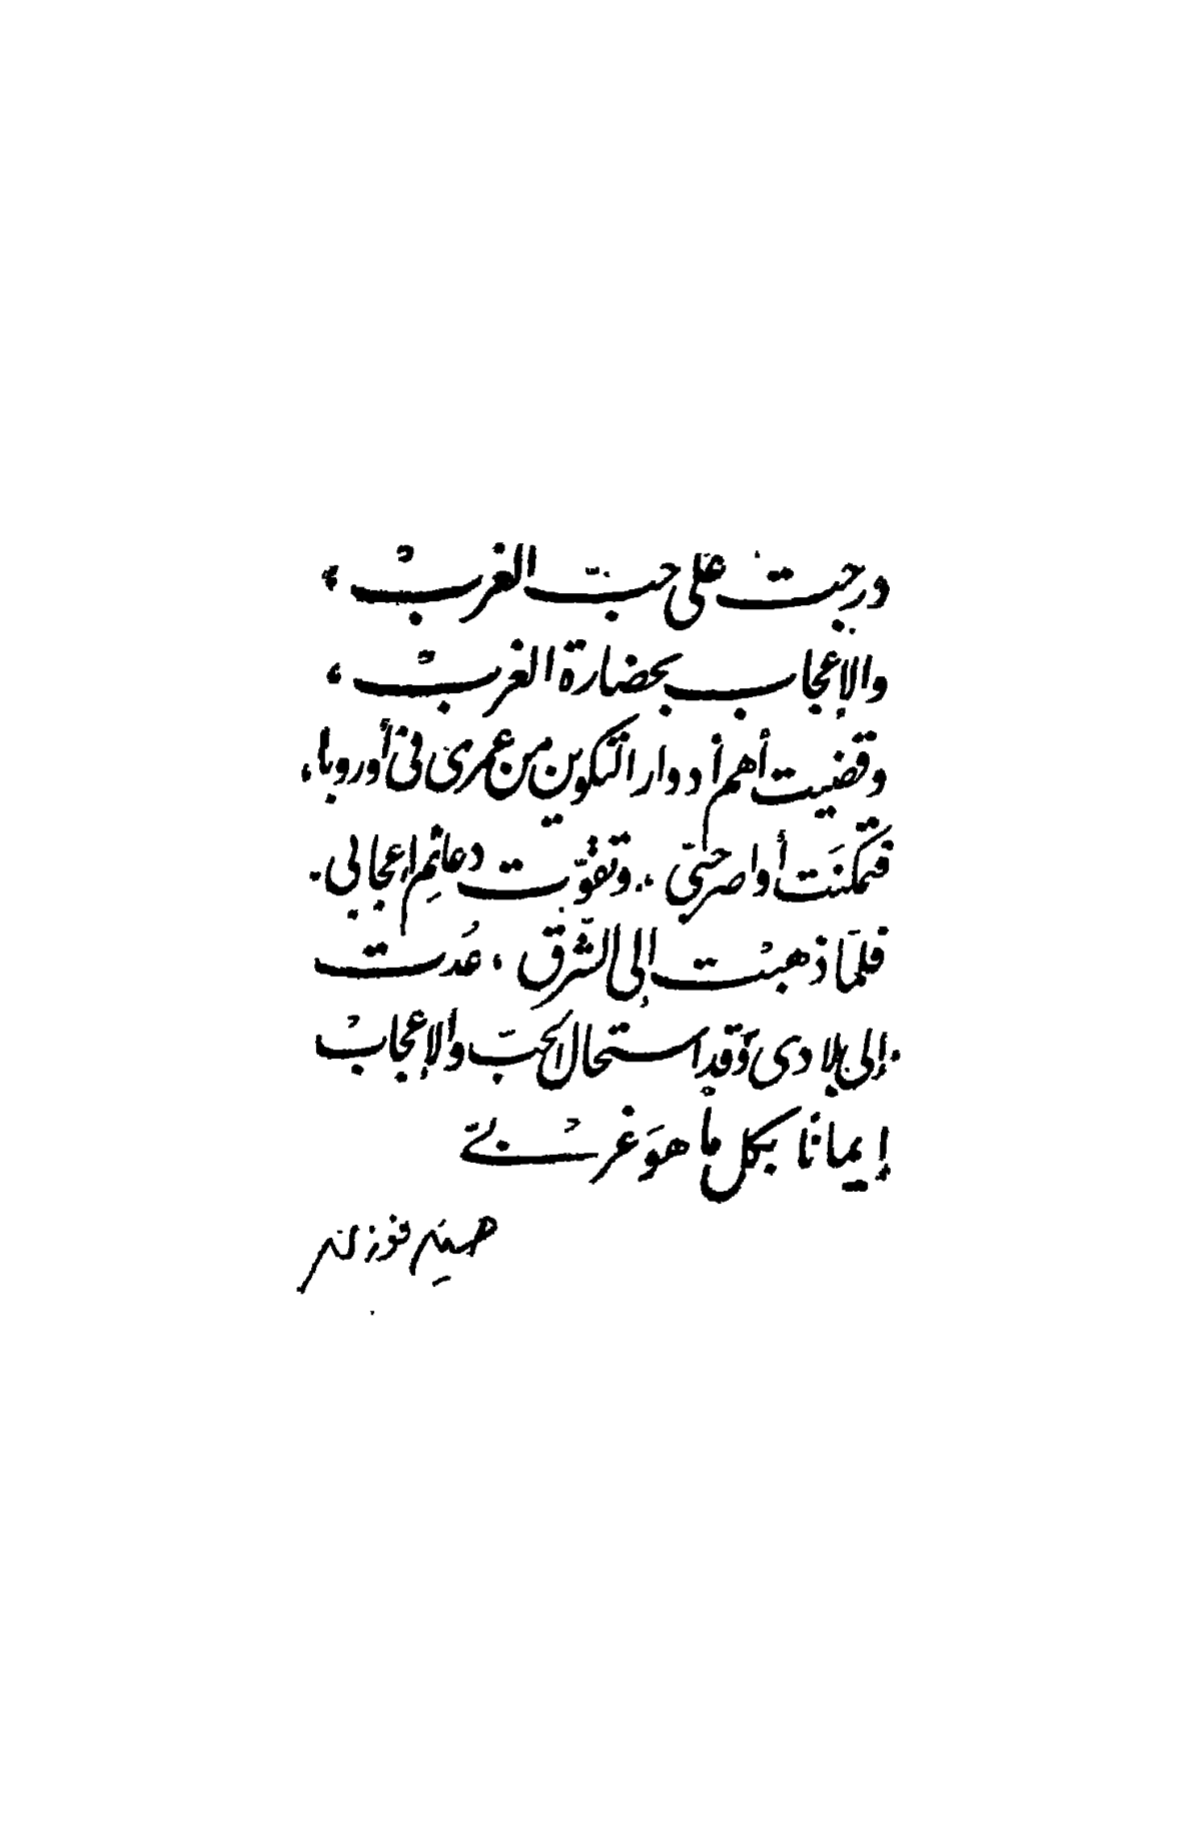 درجت على حبّ الغرب ،
والإعجاب بحضارة الغرب ،
وقضيت أهم أدوار التكوين من عمرى فى أوروبا ،
فتمكنَت أواصر حبّى ، وتقوّت دعائم إعجابى .
فلمّا ذهبت إلى الشّرق ، عُدت
إلى بلادى وَقد استحال الحبّ والإعجاب
إيمانًا بكل ما هوَ غربىّ
حسين فوزى